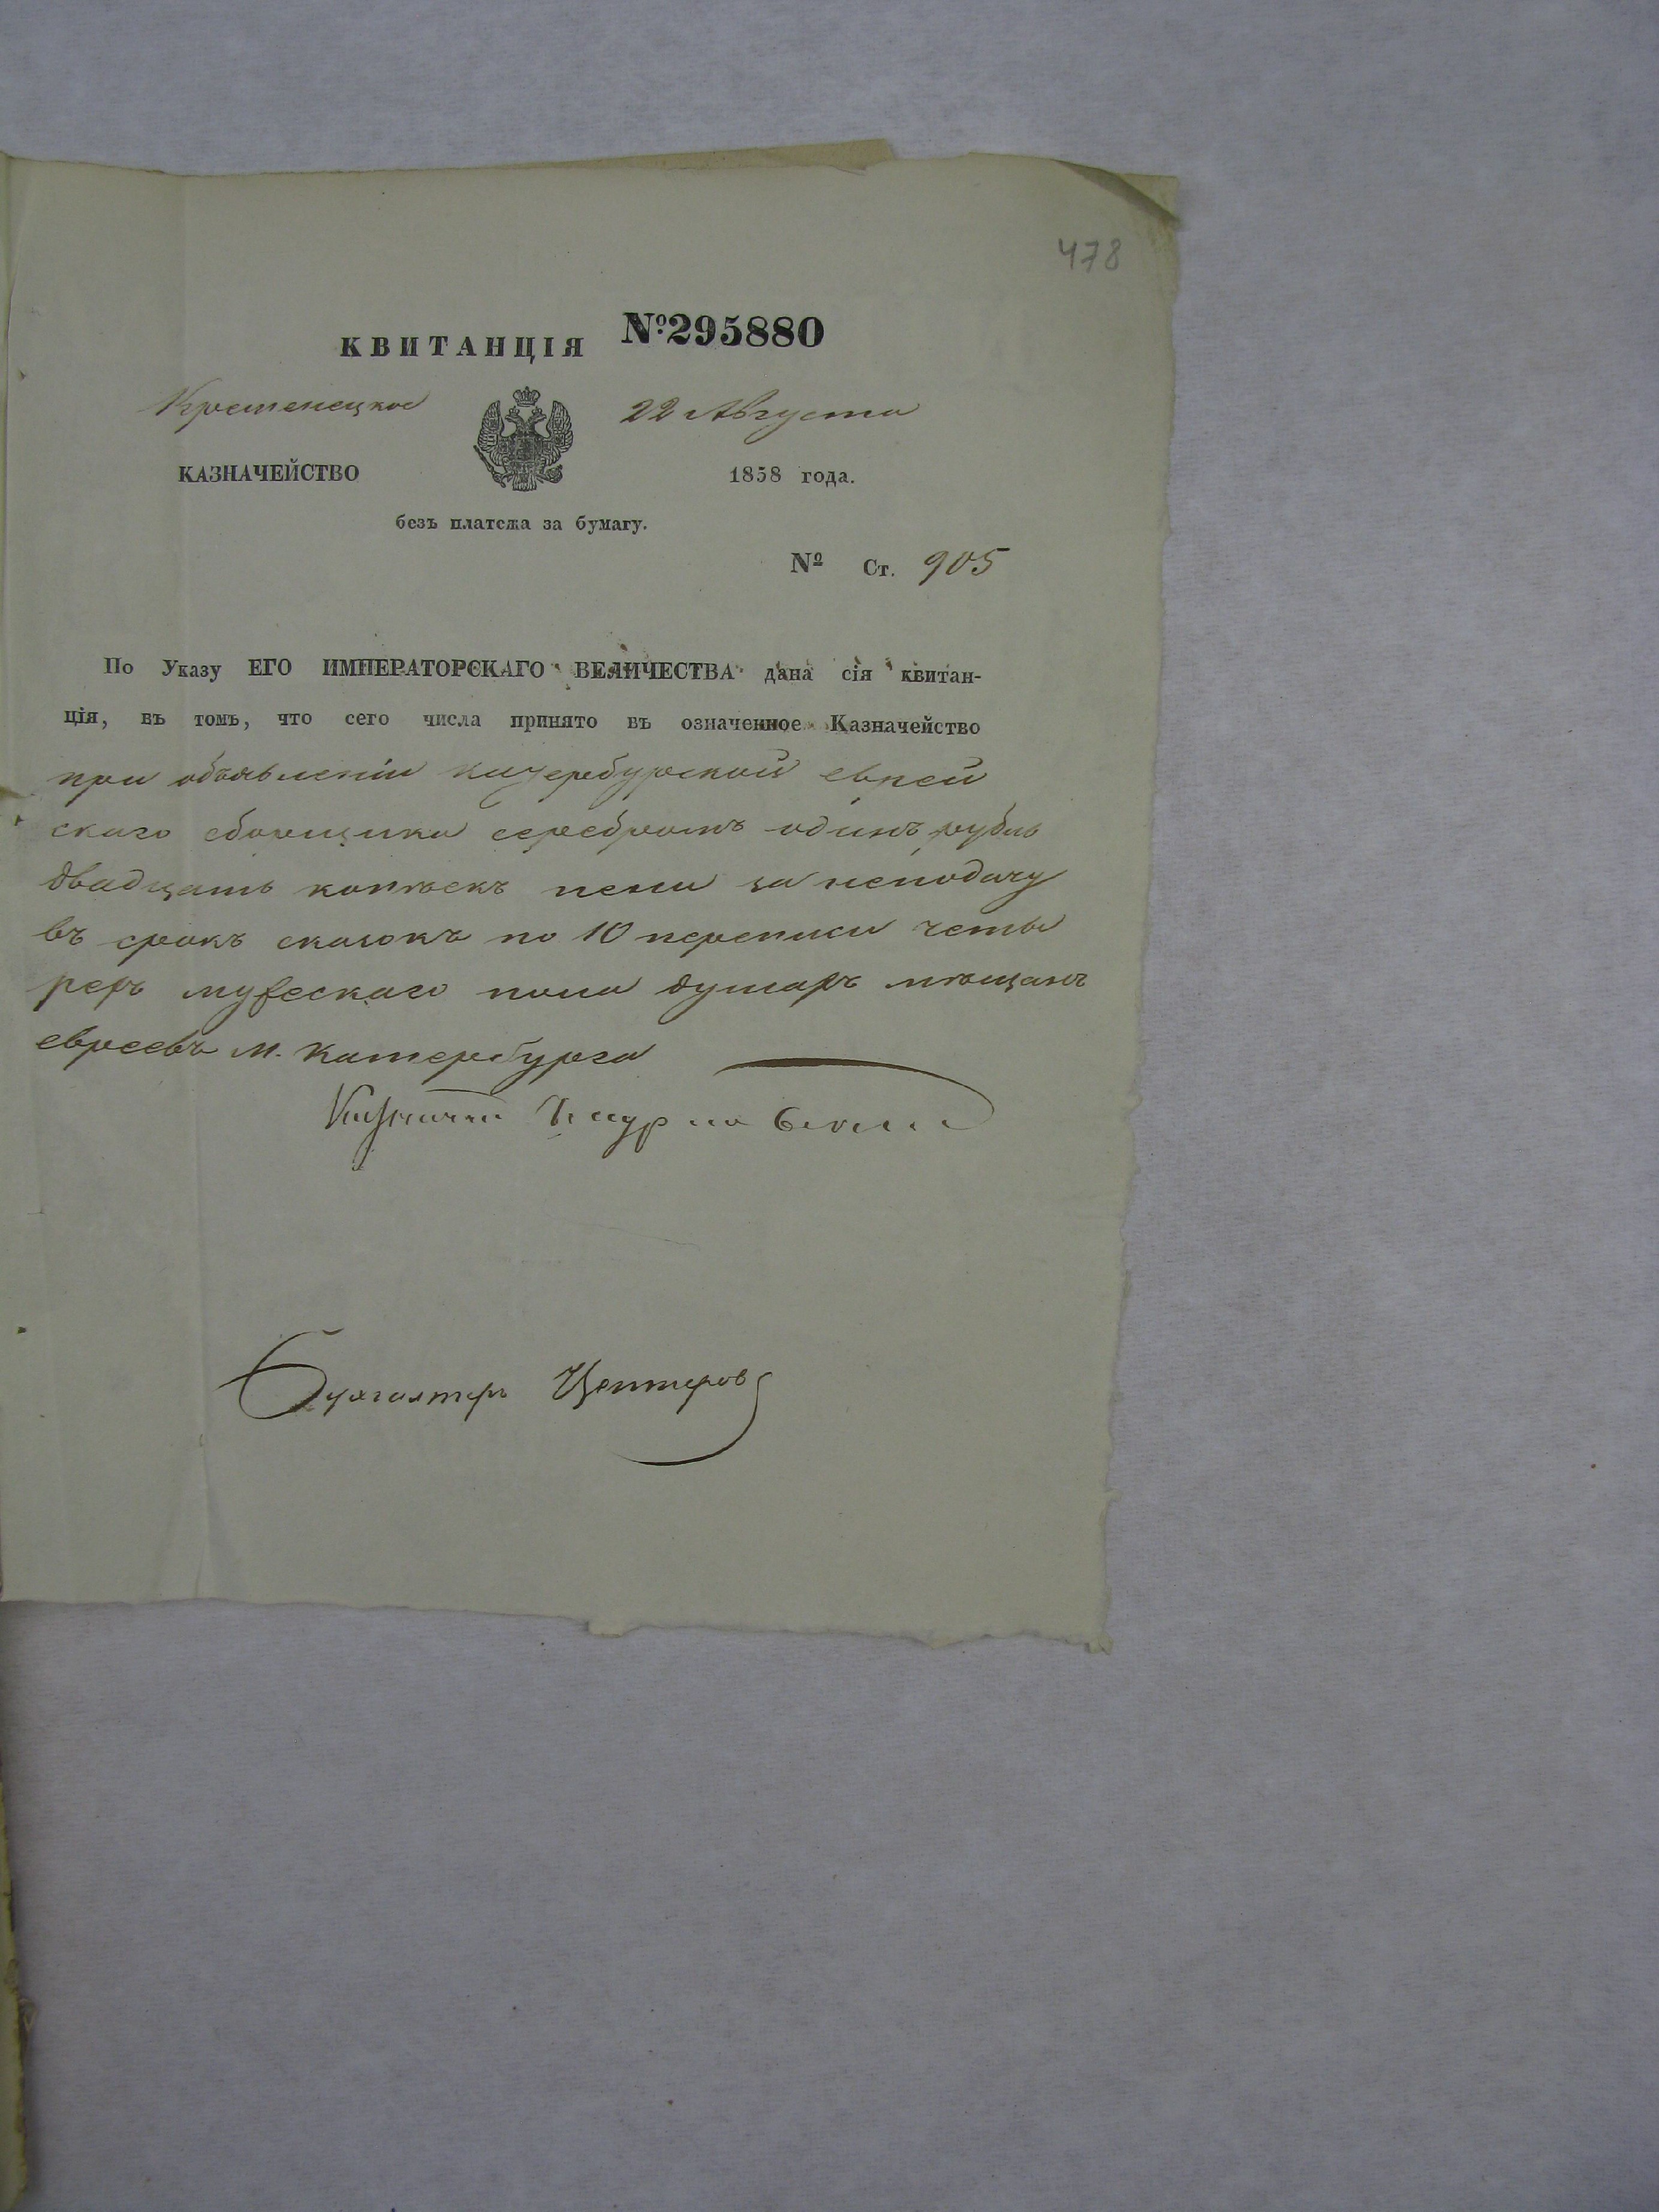 478
КВИТАНЦІЯ №295880
Кременецкое 22 Августа
КАЗНАЧЕЙСТВО 1858 года.
безъ платежа за бумагу.
№ Ст. 905
По Указу ЕГО ИМПЕРАТОРСКАГО ВЕЛИЧЕСТВА дана сія квитан-
ція, въ томъ, что сего числа принято въ означенное Казначейство
при объявленіи катербурской еврей
скаго сборщика серебромъ одинъ рубль
двадцать копѣекъ пени за неподачу
въ срокъ сказокъ по 10 переписи четы
рехъ мужескаго пола душахъ мѣщанъ
евреевъ м. Катербурга
Казначей
Бухгалтеръ